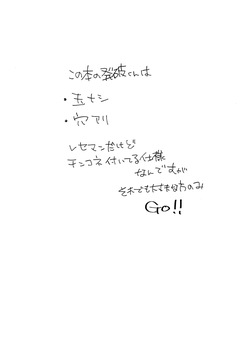 この本の裂破くんは
・玉ナシ
・穴アリ
レセマンだけど
チンコネ付いてる仕様
なんですが
それでも大丈夫な方のみ
Go!!